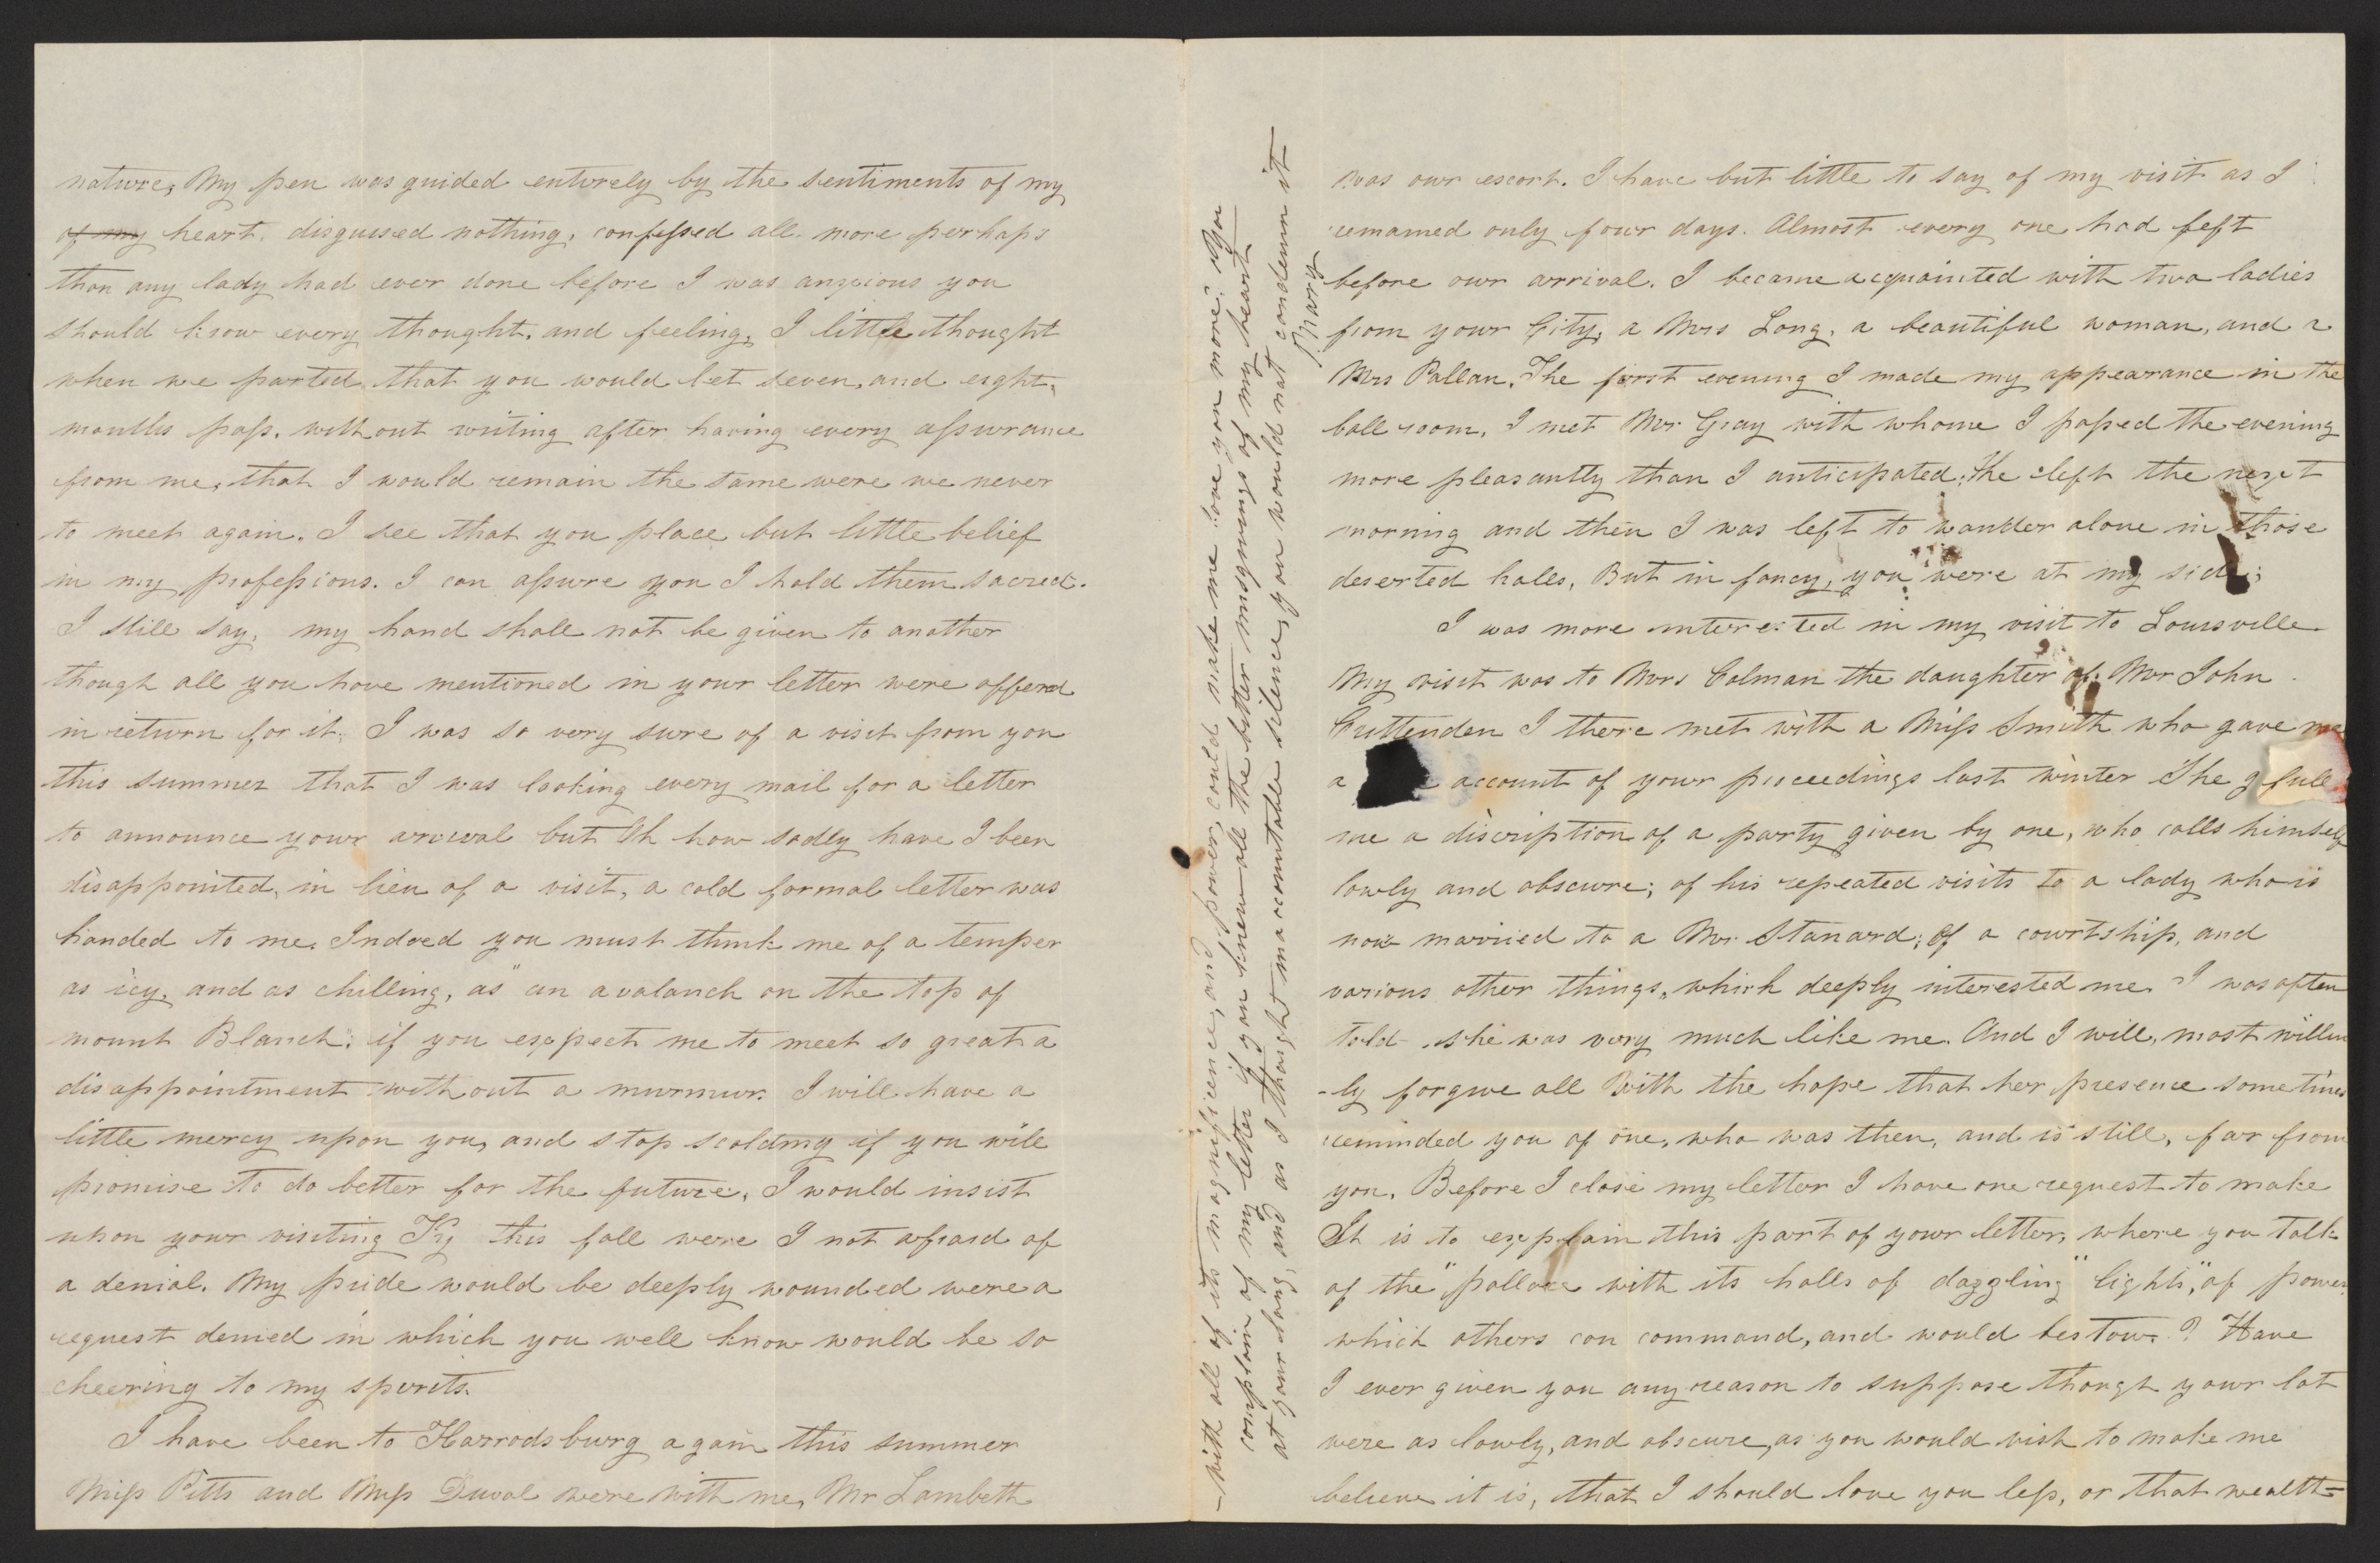 nature, My pen was guided enturely by the sentiments of my
of my heart. disguised nothing, confessed all. more perhaps
than any lady had ever done before I was anxious you
should know every thought, and feeling, I little thought
when we parted that you would let seven, and eight,
months pass, without writing after having every assurance
from me, that I would remain the same were we never
to meet again. I see that you place but little belief
in my professions. I can assure you I hold them sacred.
I still say, my hand shall not be given to another
though all you have mentioned in your letter were offerd
in return for it, I was so very sure of a visit from you
this summer that I was looking every mail for a letter
to announce your arrival but Oh how sadly have I been
disappointed, in lieu of a visit, a cold formal letter was
handed to me. Indeed you must think me of a temper
as icy, and as chilling, as "an avalanch on the top of
mount Blanch", if you expect me to meet so great a
disappointment without a murmur. I will have a
little mercy upon you, and stop scolding if you will
promise to do better for the future, I would insist
upon your visiting Ky this fall were I not afraid of
a denial. My pride would be deeply wounded were a
request denied in which you well know would be so
cheering to my spirits.
I have been to Harrodsburg again this summer
Miss Pitts and Miss Duval were with me, Mr Lambeth
was our escort. I have but little to say of my visit as I
remained only four days. Almost every one had left
before our arrival. I became acquainted with two ladies
from your City, a Mrs Long, a beautiful woman, and a
Mrs Pallan. The first evening I made my appearance in the
ball room, I met Mr Gray with whome I passed the evening
more pleasantly than I anticipated, He left the next
morning and then I was left to wander alone in those
deserted halls, But in fancy, you were at my side;
I was more interested in my visit to Louisville
My visit was to Mrs Colman the daughter of Mr John
Crittenden I there met with a Miss Smith who gave me
a account of your proceedings last winter She g full
me a discription of a party given by one, who calls himself
lowly and obscure; of his repeated visits to a lady who is
now married to a Mr. Stanard; Of a courtship, and
various other things, which deeply interested me. I was often
told she was very much like me. And I will, most willin
-ly forgive all With the hope that her presence sometimes
reminded you of one, who was then, and is still, far from
you. Before I close my letter I have one request to make
It is to explain this part of your letter, where you talk
of the "pallace with its halls of dazzling lights," of power
which others can command, and would bestow? Have
I ever given you any reason to suppose though your lot
were as lowly, and obscure, as you would wish to make me
believe it is, that I should love you less, or that wealth-
-with all of its magnificence, and power, could make me love you more? You
complain of my letter if you knew all the bitter misgivings of my heart
at your long, and as I thought unaccountable silence, you would not condemn it
Mary